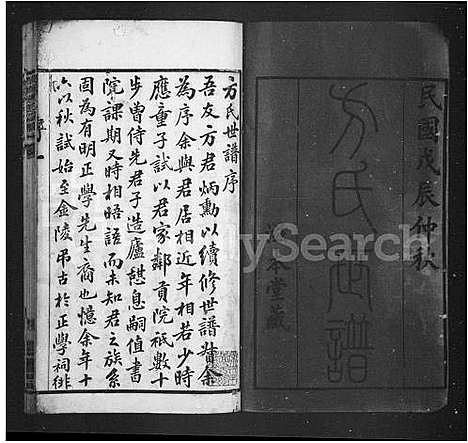 民國戊辰仲秋
方氏世譜
本堂藏
方氏世譜序
吾友方君炳勳以續修世譜
為序余與君居相近年相若少時
應童子試以君家鄰貢院祇數十
步曾侍先君子造廬憩息嗣值書
院課期又時相晤語而未知君之族系
固為有明正學先生裔也憶余年十
六以秋試始至金陵弔古於正學祠徘
MySearch